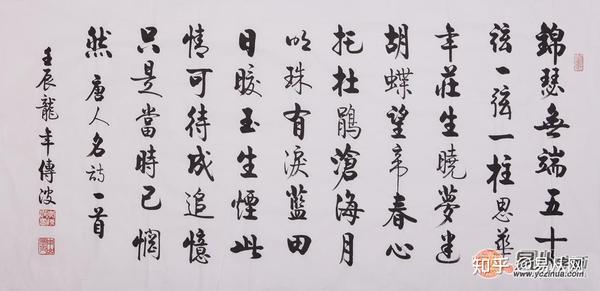 錦瑟無端五十
弦一弦一柱思華
年莊生曉夢迷
胡蝶望帝春心
托杜鵑滄海月
明珠有淚藍田
日暖玉生煙此
情可待成追憶
只是當時已惘
然 唐人名詩一首
壬辰龍年傳波
知乎 @易从网
www.yczihua.com